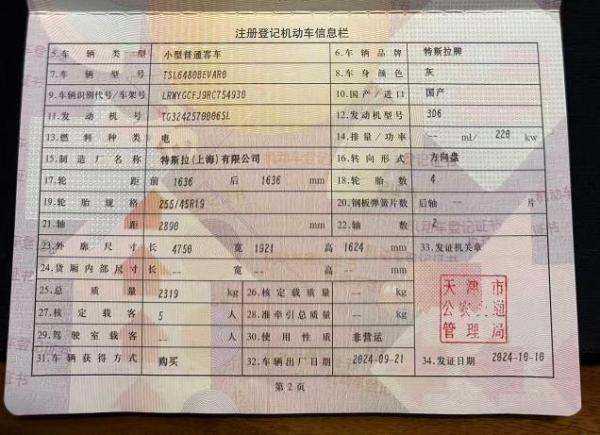 注册登记机动车信息栏
5.车辆类型 小型普通客车 6.车辆品牌 特斯拉牌
7.车辆型号 TSL6480BEVAR0 8.车身颜色 灰
9.车辆识别代号/车架号 LRWYGCFJ9RC754930 10.国产/进口 国产
11.发动机号 TG32425700065L 12.发动机型号 3D6
13.燃料种类 电 14.排量/功率 -- ml/ 220 kw
15.制造厂名称 特斯拉(上海)有限公司 16.转向形式 方向盘
17.轮距 前 1636 后 1636 mm 18.轮胎数 4
19.轮胎规格 255/45R19 20.钢板弹簧片数 后轴 -- 片
21.轴距 2890 mm 22.轴数 2
23.外廓尺寸 长 4750 宽 1921 高 1624 mm 33.发证机关章
24.货厢内部尺寸 长 -- 宽 -- 高 -- mm
25.总质量 2319 kg 26.核定载质量 -- kg
27.核定载客 5 人 28.准牵引总质量 -- kg
29.驾驶室载客 -- 人 30.使用性质 非营运
天津市
公安交通
管理局
31.车辆获得方式 购买 32.车辆出厂日期 2024-09-21 34.发证日期 2024-10-10
第2页